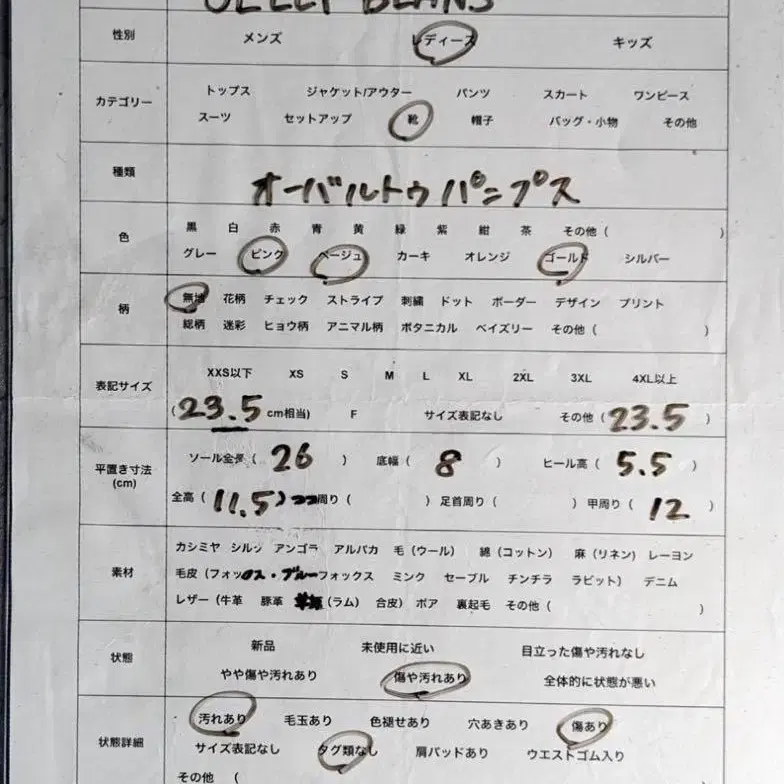 JELLY BEANS
性別 メンズ レディース キッズ
カテゴリー
トップス ジャケット/アウター パンツ スカート ワンピース
スーツ セットアップ 靴 帽子 バッグ・小物 その他
種類 オーバルトゥパンプス
色
黒 白 赤 青 黄 緑 紫 紺 茶 その他 ( )
グレー ピンク ベージュ カーキ オレンジ ゴールド シルバー
柄
無地 花柄 チェック ストライプ 刺繍 ドット ボーダー デザイン プリント
総柄 迷彩 ヒョウ柄 アニマル柄 ボタニカル ペイズリー その他 ( )
表記サイズ
XXS以下 XS S M L XL 2XL 3XL 4XL以上
(23.5cm相当) F サイズ表記なし その他 (23.5)
平置き寸法
(cm)
ソール全長 ( 26 ) 底幅 ( 8 ) ヒール高 ( 5.5 )
全高 ( 11.5 ) 周り ( ) 足首周り ( ) 甲周り ( 12 )
素材
カシミヤ シルク アンゴラ アルパカ 毛 (ウール) 綿 (コットン) 麻 (リネン) レーヨン
毛皮 (フォックス・ブルーフォックス ミンク セーブル チンチラ ラビット) デニム
レザー (牛革 豚革 (ラム) 合皮) ボア 裏起毛 その他 ( )
状態
新品 未使用に近い 目立った傷や汚れなし
やや傷や汚れあり 傷や汚れあり 全体的に状態が悪い
状態詳細
汚れあり 毛玉あり 色褪せあり 穴あきあり 傷あり
サイズ表記なし タグ類なし 肩パッドあり ウエストゴム入り
その他 (